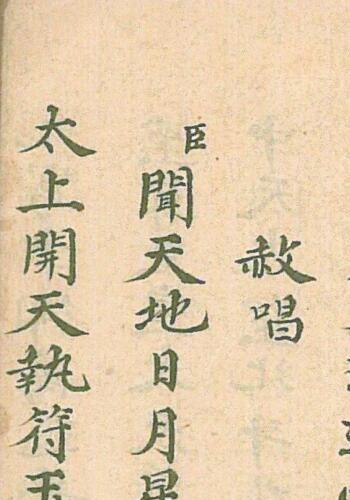 赦唱
臣聞天地日月星
太上開天執符玉